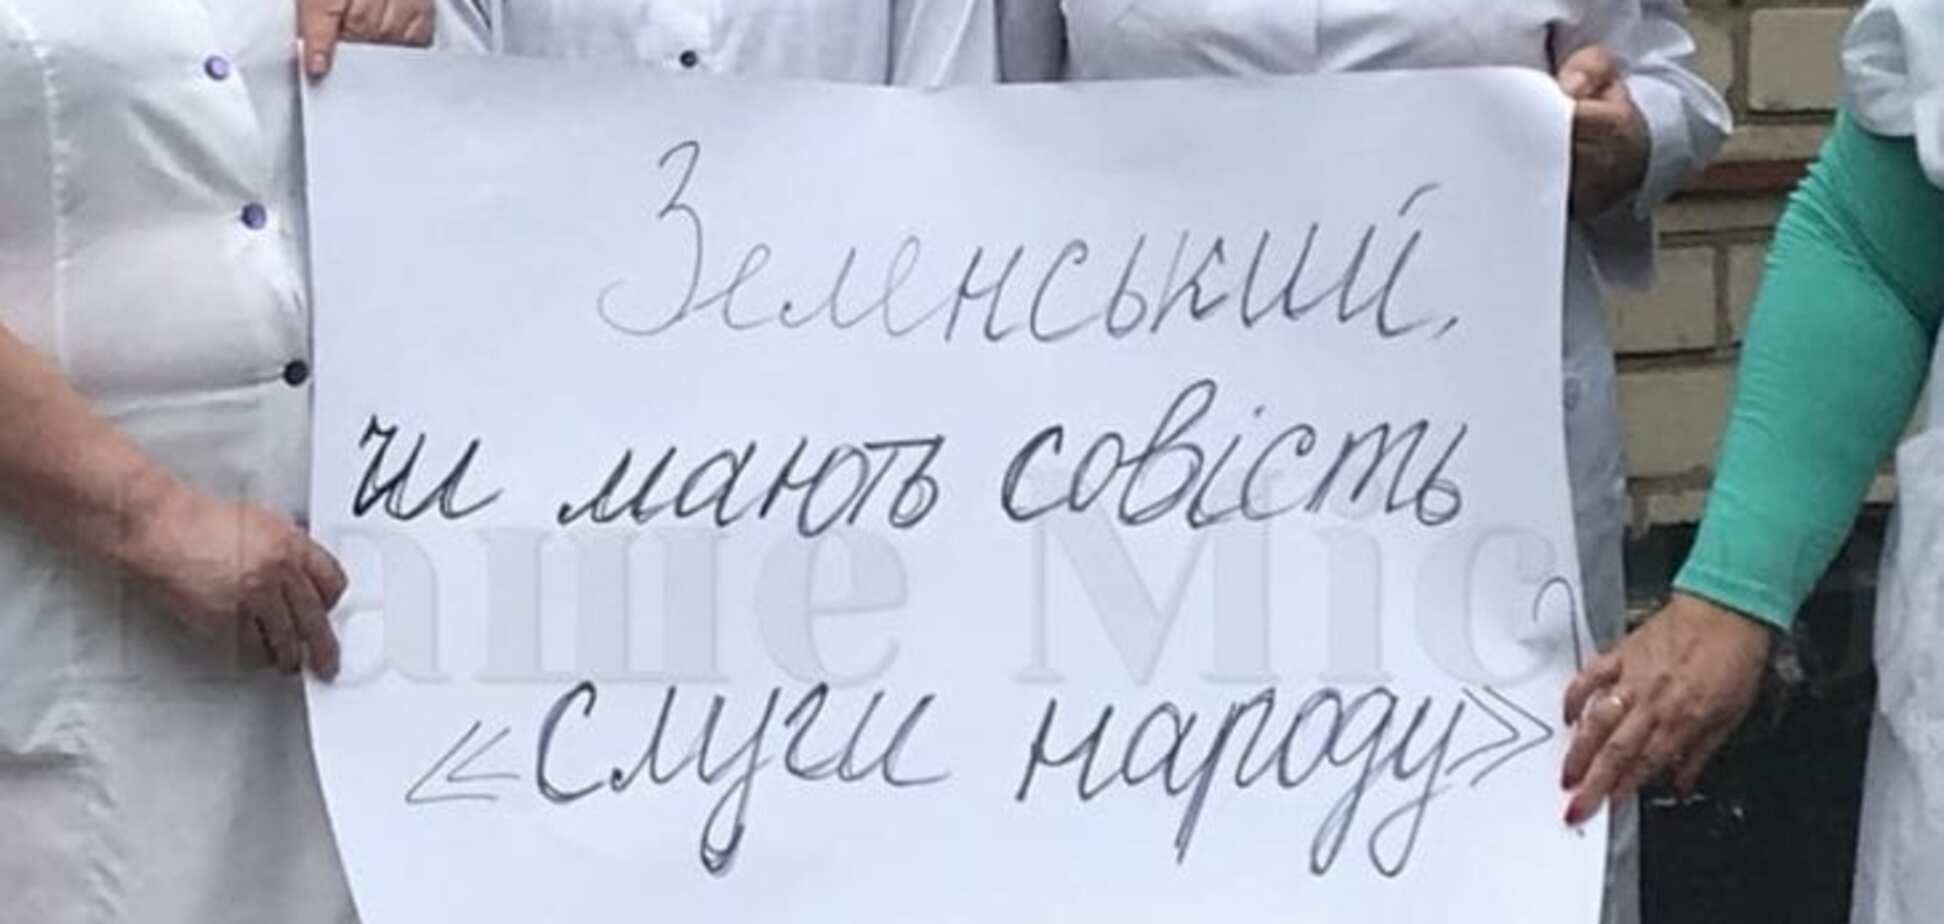 Зеленський,
чи мають совість
«слуги народу»?
Наше Міс